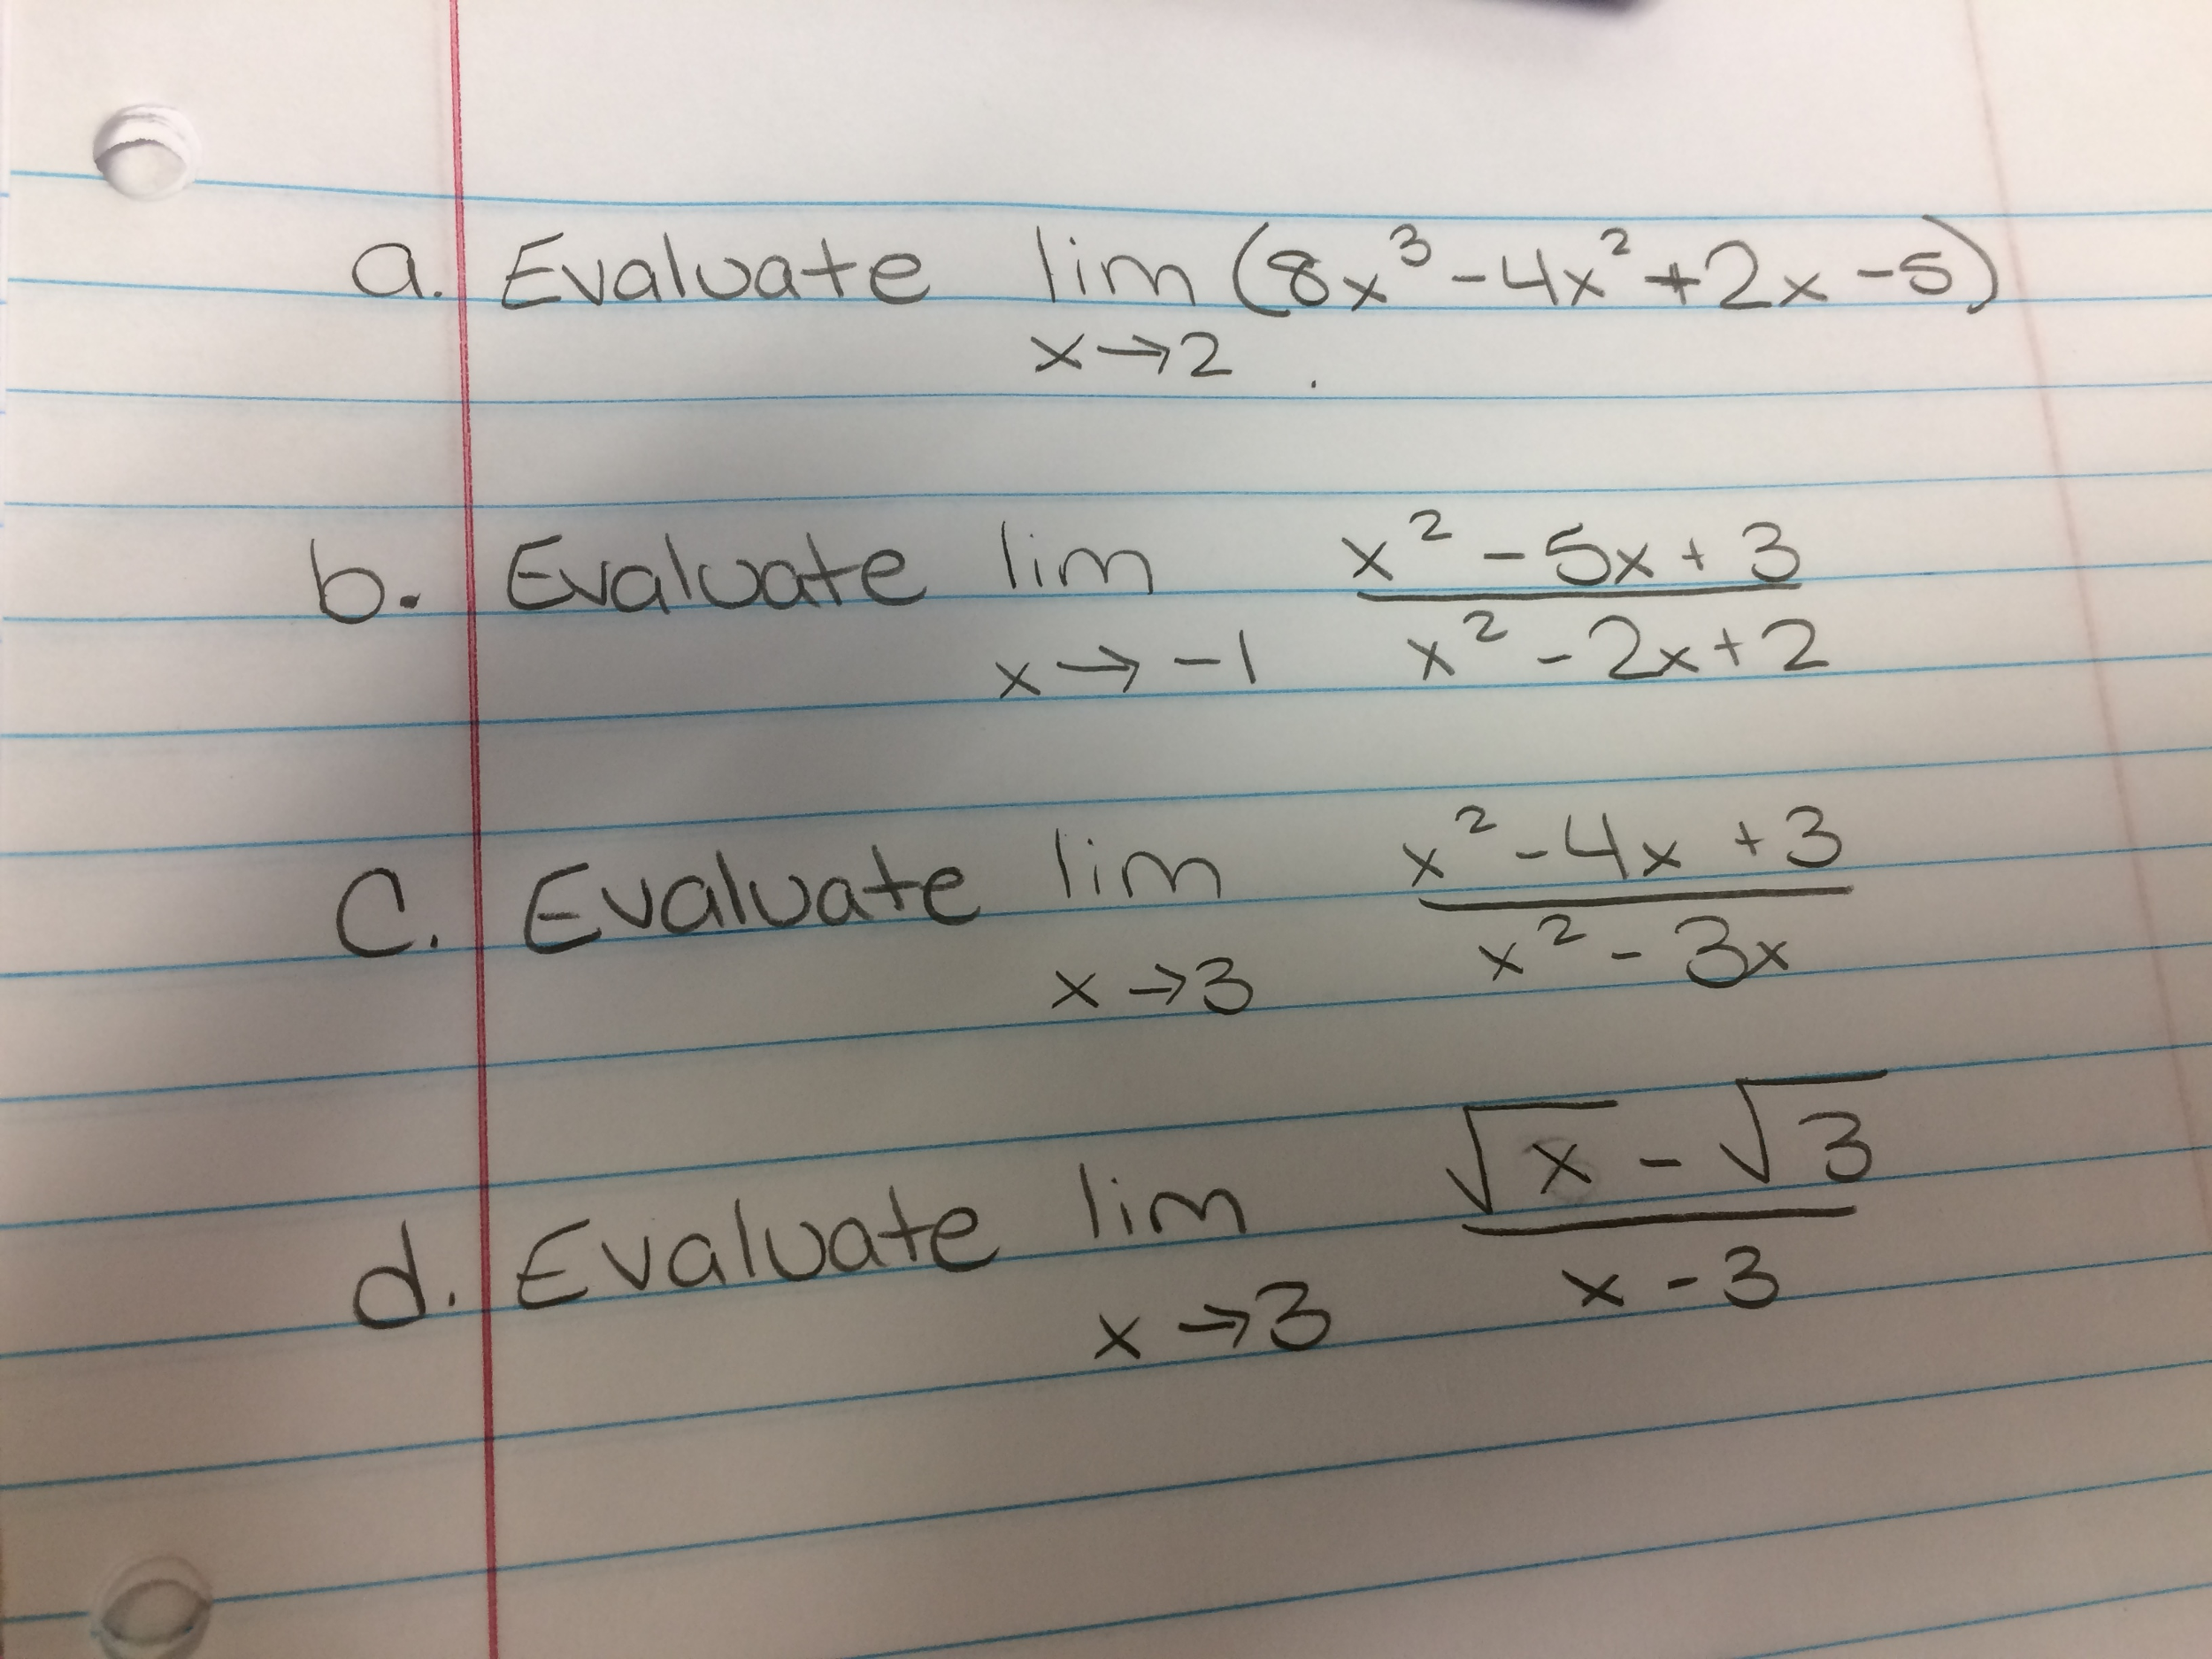 a. Evaluate lim (8x³ - 4x² + 2x - 5)
x → 2 .
b. Evaluate lim x² - 5x + 3
x → -1 x² - 2x + 2
c. Evaluate lim x² - 4x + 3
x → 3 x² - 3x
d. Evaluate lim √x - √3
x → 3 x - 3